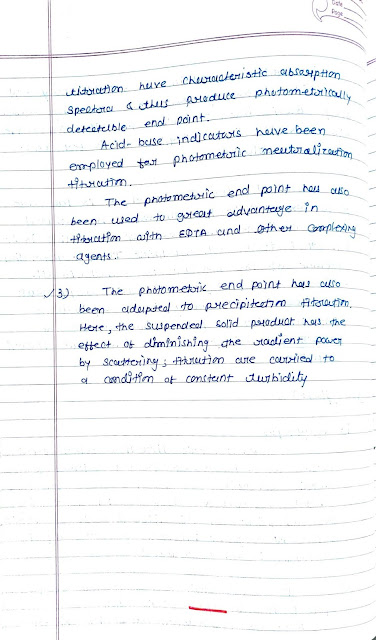 Date
Page
titration have characteristic absorption
spectra & thus produce photometrically
detectible end point.
Acid-base indicators have been
employed for photometric neutralization
titration.
The photometric end point has also
been used to great advantage in
titration with EDTA and other complexing
agents.
3) The photometric end point has also
been adapted to precipitation titration.
Here, the suspended solid product has the
effect of diminishing the radient power
by scattering; titration are carried to
a condition of constant turbidity